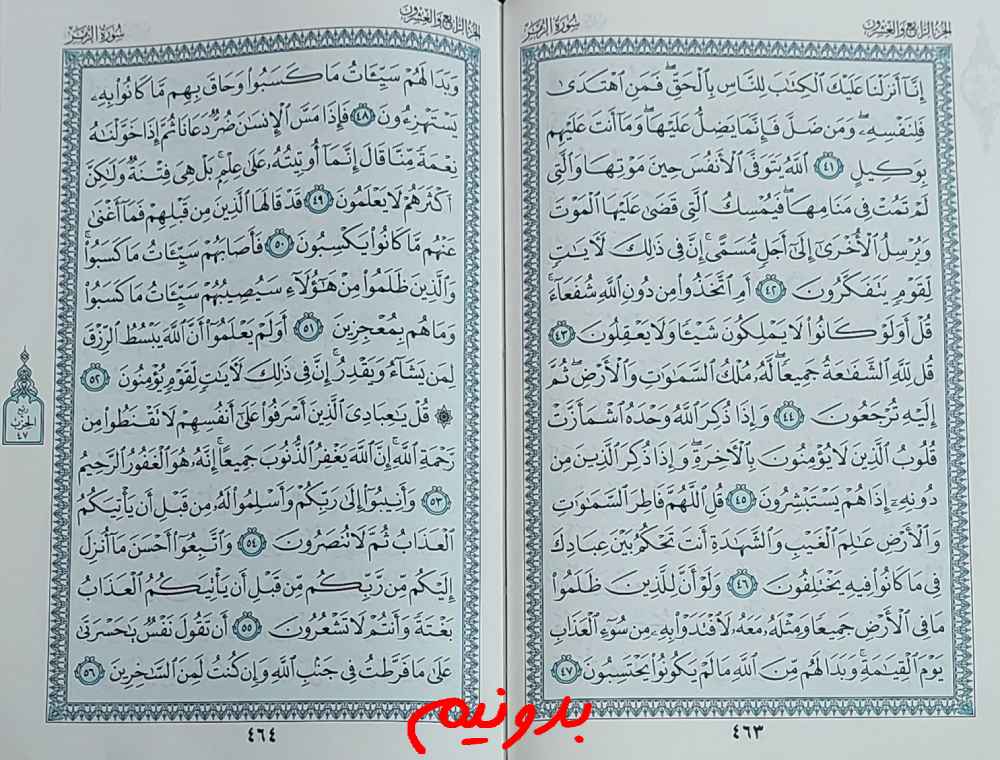 الجزء الرابع والعشرون
سورة الزمر
إِنَّا أَنزَلْنَا عَلَيْكَ الْكِتَابَ لِلنَّاسِ بِالْحَقِّ ۖ فَمَنِ اهْتَدَىٰ
فَلِنَفْسِهِ ۖ وَمَن ضَلَّ فَإِنَّمَا يَضِلُّ عَلَيْهَا ۖ وَمَا أَنتَ عَلَيْهِم
بِوَكِيلٍ ٤١ اللَّهُ يَتَوَفَّى الْأَنفُسَ حِينَ مَوْتِهَا وَالَّتِي
لَمْ تَمُتْ فِي مَنَامِهَا ۖ فَيُمْسِكُ الَّتِي قَضَىٰ عَلَيْهَا الْمَوْتَ
وَيُرْسِلُ الْأُخْرَىٰ إِلَىٰ أَجَلٍ مُّسَمًّى ۚ إِنَّ فِي ذَٰلِكَ لَآيَاتٍ
لِّقَوْمٍ يَتَفَكَّرُونَ ٤٢ أَمِ اتَّخَذُوا مِن دُونِ اللَّهِ شُفَعَاءَ ۚ
قُلْ أَوَلَوْ كَانُوا لَا يَمْلِكُونَ شَيْئًا وَلَا يَعْقِلُونَ ٤٣
قُل لِّلَّهِ الشَّفَاعَةُ جَمِيعًا ۖ لَّهُ مُلْكُ السَّمَاوَاتِ وَالْأَرْضِ ۖ ثُمَّ
إِلَيْهِ تُرْجَعُونَ ٤٤ وَإِذَا ذُكِرَ اللَّهُ وَحْدَهُ اشْمَأَزَّتْ
قُلُوبُ الَّذِينَ لَا يُؤْمِنُونَ بِالْآخِرَةِ ۖ وَإِذَا ذُكِرَ الَّذِينَ مِن
دُونِهِ إِذَا هُمْ يَسْتَبْشِرُونَ ٤٥ قُلِ اللَّهُمَّ فَاطِرَ السَّمَاوَاتِ
وَالْأَرْضِ عَالِمَ الْغَيْبِ وَالشَّهَادَةِ أَنتَ تَحْكُمُ بَيْنَ عِبَادِكَ
فِي مَا كَانُوا فِيهِ يَخْتَلِفُونَ ٤٦ وَلَوْ أَنَّ لِلَّذِينَ ظَلَمُوا
مَا فِي الْأَرْضِ جَمِيعًا وَمِثْلَهُ مَعَهُ لَافْتَدَوْا بِهِ مِن سُوءِ الْعَذَابِ
يَوْمَ الْقِيَامَةِ ۚ وَبَدَا لَهُم مِّنَ اللَّهِ مَا لَمْ يَكُونُوا يَحْتَسِبُونَ ٤٧
٤٦٣
الجزء الرابع والعشرون
سورة الزمر
وَبَدَا لَهُمْ سَيِّئَاتُ مَا كَسَبُوا وَحَاقَ بِهِم مَّا كَانُوا بِهِ
يَسْتَهْزِءُونَ ٤٨ فَإِذَا مَسَّ الْإِنسَانَ ضُرٌّ دَعَانَا ثُمَّ إِذَا خَوَّلْنَاهُ
نِعْمَةً مِّنَّا قَالَ إِنَّمَا أُوتِيتُهُ عَلَىٰ عِلْمٍ ۚ بَلْ هِيَ فِتْنَةٌ وَلَٰكِنَّ
أَكْثَرَهُمْ لَا يَعْلَمُونَ ٤٩ قَدْ قَالَهَا الَّذِينَ مِن قَبْلِهِمْ فَمَا أَغْنَىٰ
عَنْهُم مَّا كَانُوا يَكْسِبُونَ ٥٠ فَأَصَابَهُمْ سَيِّئَاتُ مَا كَسَبُوا ۚ
وَالَّذِينَ ظَلَمُوا مِنْ هَٰؤُلَاءِ سَيُصِيبُهُمْ سَيِّئَاتُ مَا كَسَبُوا
وَمَا هُم بِمُعْجِزِينَ ٥١ أَوَلَمْ يَعْلَمُوا أَنَّ اللَّهَ يَبْسُطُ الرِّزْقَ
لِمَن يَشَاءُ وَيَقْدِرُ ۚ إِنَّ فِي ذَٰلِكَ لَآيَاتٍ لِّقَوْمٍ يُؤْمِنُونَ ٥٢
۞ قُلْ يَا عِبَادِيَ الَّذِينَ أَسْرَفُوا عَلَىٰ أَنفُسِهِمْ لَا تَقْنَطُوا مِن
رَّحْمَةِ اللَّهِ ۚ إِنَّ اللَّهَ يَغْفِرُ الذُّنُوبَ جَمِيعًا ۚ إِنَّهُ هُوَ الْغَفُورُ الرَّحِيمُ
٥٣ وَأَنِيبُوا إِلَىٰ رَبِّكُمْ وَأَسْلِمُوا لَهُ مِن قَبْلِ أَن يَأْتِيَكُمُ
الْعَذَابُ ثُمَّ لَا تُنصَرُونَ ٥٤ وَاتَّبِعُوا أَحْسَنَ مَا أُنزِلَ
إِلَيْكُم مِّن رَّبِّكُم مِّن قَبْلِ أَن يَأْتِيَكُمُ الْعَذَابُ
بَغْتَةً وَأَنتُمْ لَا تَشْعُرُونَ ٥٥ أَن تَقُولَ نَفْسٌ يَا حَسْرَتَىٰ
عَلَىٰ مَا فَرَّطتُ فِي جَنبِ اللَّهِ وَإِن كُنتُ لَمِنَ السَّاخِرِينَ ٥٦
٤٦٤
ربع
الحزب
٤٧
بدونیم